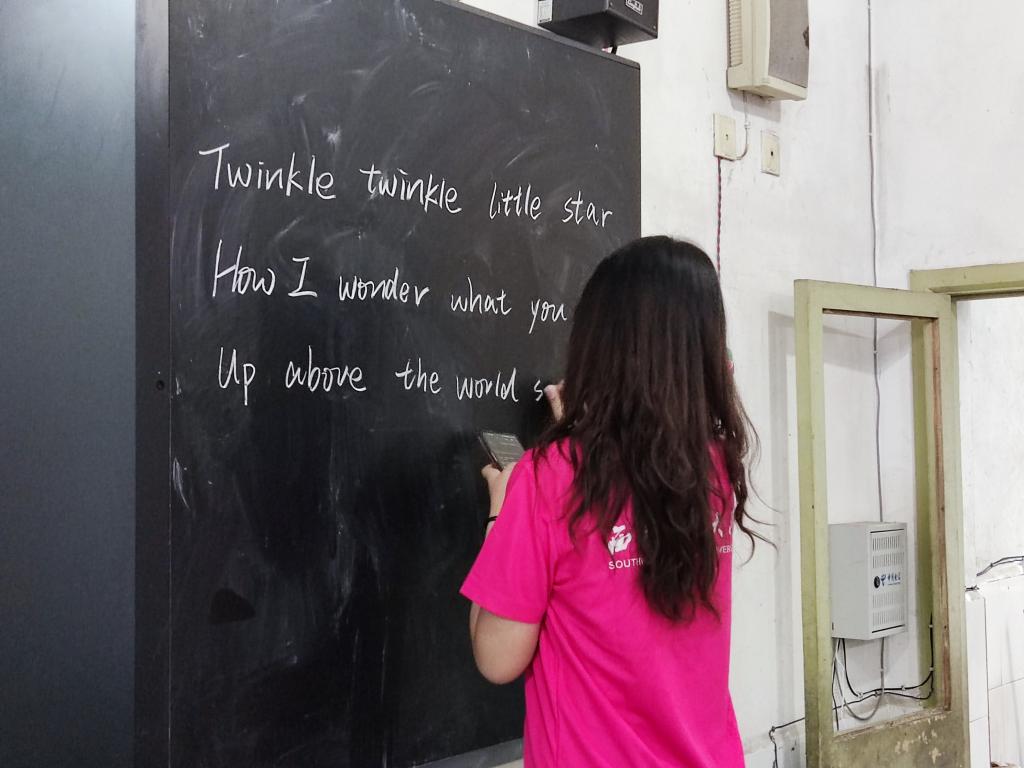 Twinkle twinkle little star
How I wonder what you
Up above the world s
SOUTH